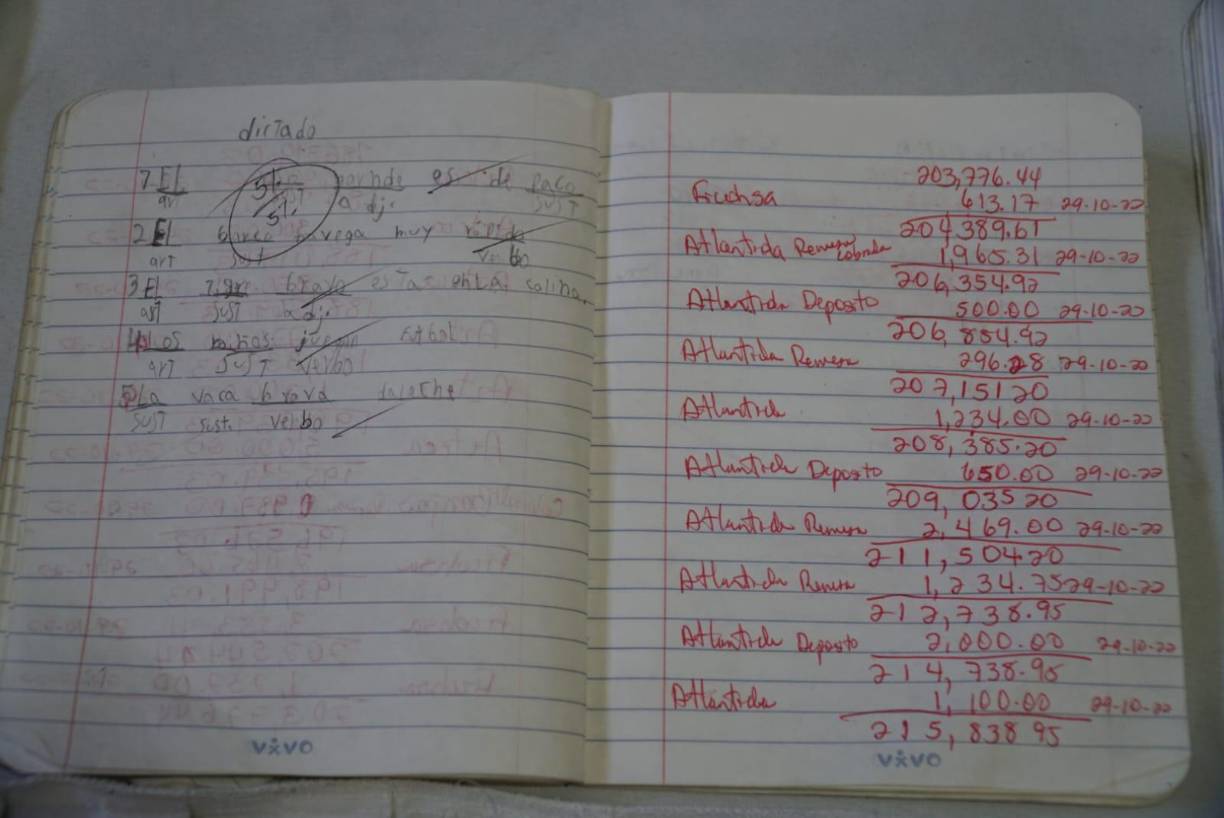 dictado
1 El es de paco
art adj. sust
2 El barco navega muy
art sust verbo
3 El tigre bravo estas en la colina.
art sust adj.
4 Los niños juegan futbol
art sust verbo
5 La vaca brava da leche
sust sust. verbo
VIVO
203,776.44
Ficohsa 613.17 29-10-22
204,389.61
Atlantida Remesa 1,965.31 29-10-22
206,354.92
Atlantida Deposito 500.00 29-10-22
206,854.92
Atlantida Remesa 296.28 29-10-22
207,15120
Atlantida 1,234.00 29-10-22
208,385.20
Atlantida Deposito 650.00 29-10-22
209,03520
Atlantida Remesa 2,469.00 29-10-22
211,50420
Atlantida Remesa 1,234.75 29-10-22
212,738.95
Atlantida Deposito 2,000.00 29-10-22
214,738.95
Atlantida 1,100.00 29-10-22
215,83895
VIVO